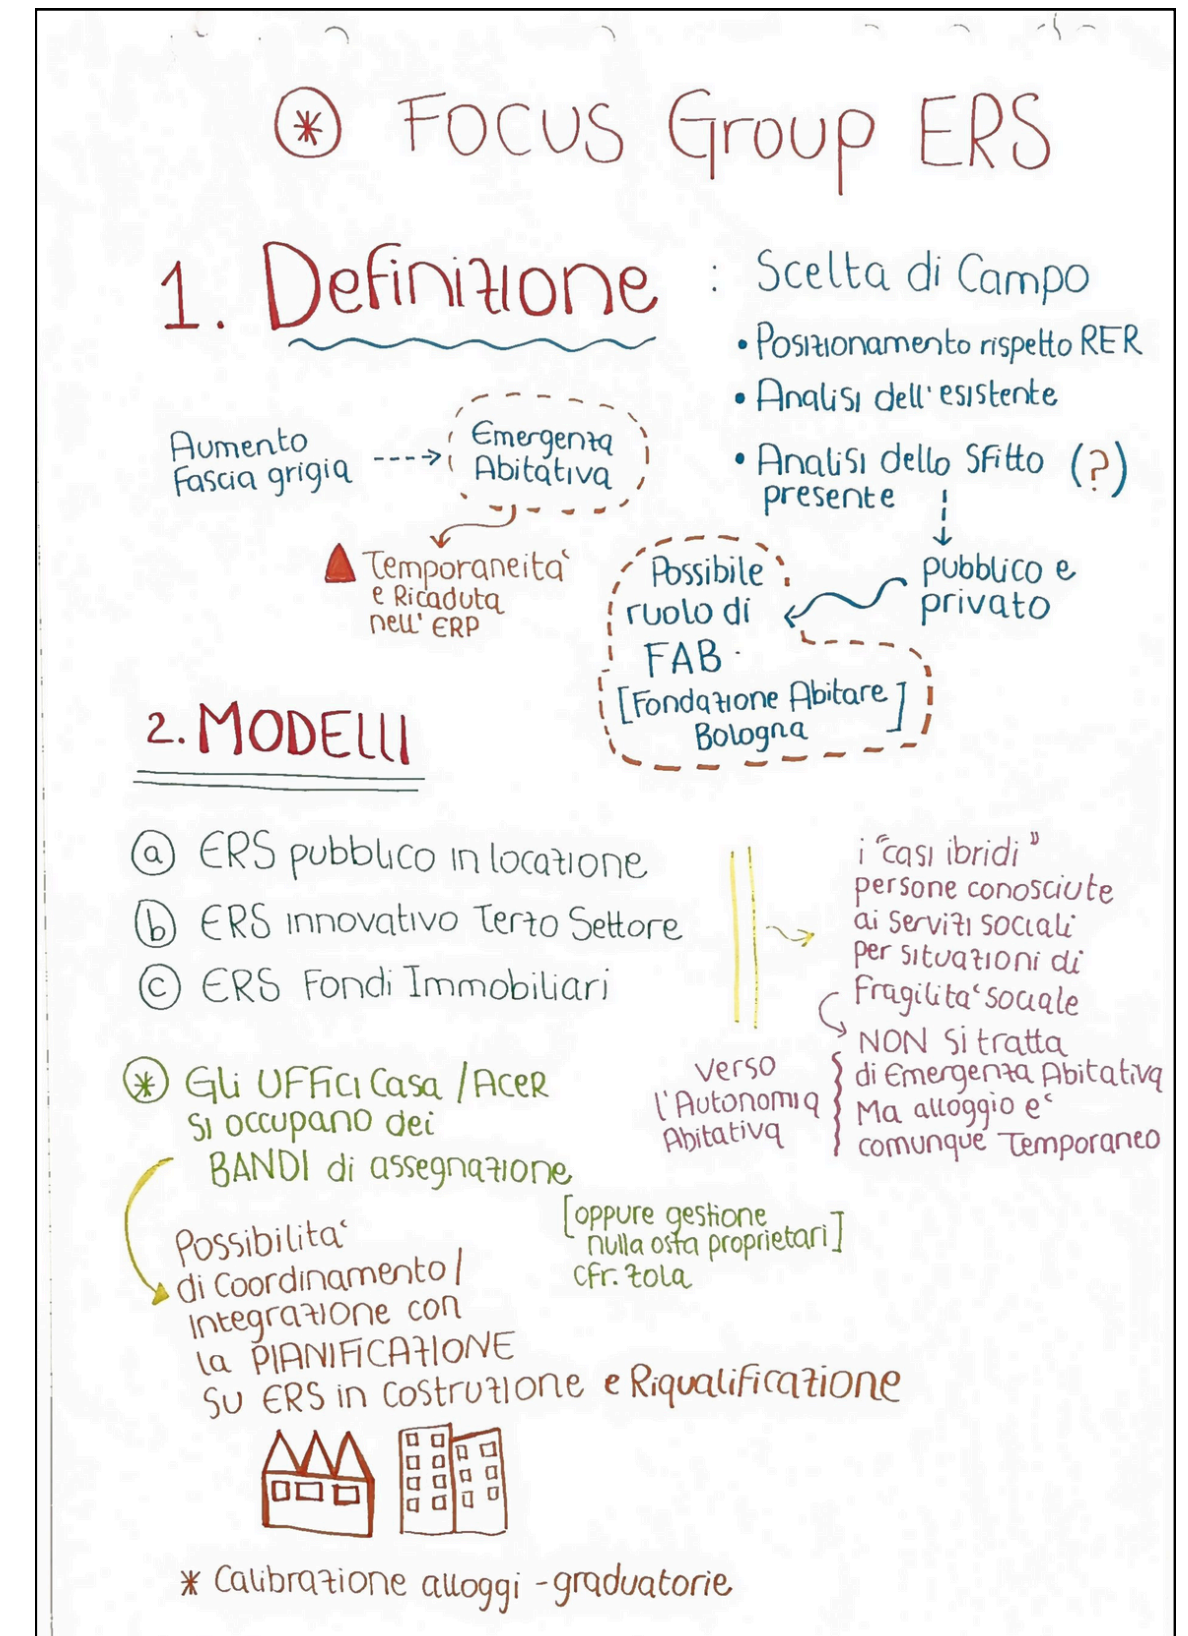 * FOCUS Group ERS
1. Definizione : Scelta di Campo
• Posizionamento rispetto RER
• Analisi dell'esistente
• Analisi dello Sfitto (?)
presente
pubblico e
privato
Aumento
Fascia grigia
Emergenza
Abitativa
Temporaneita'
e Ricaduta
nell' ERP
Possibile
ruolo di
FAB
[Fondazione Abitare
Bologna]
2. MODELLI
a ERS pubblico in locazione
b ERS innovativo Terzo Settore
c ERS Fondi Immobiliari
i "casi ibridi"
persone conosciute
ai Servizi sociali
per situazioni di
Fragilita' sociale
NON Si tratta
di Emergenza Abitativa
Ma alloggio e'
comunque Temporaneo
verso
l'Autonomia
Abitativa
* Gli UFFici Casa / AceR
Si occupano dei
BANDI di assegnazione
[oppure gestione
nulla osta proprietari]
cfr. Zola
Possibilita'
di Coordinamento /
Integrazione con
la PIANIFICAZIONE
SU ERS in Costruzione e Riqualificazione
* Calibrazione alloggi - graduatorie